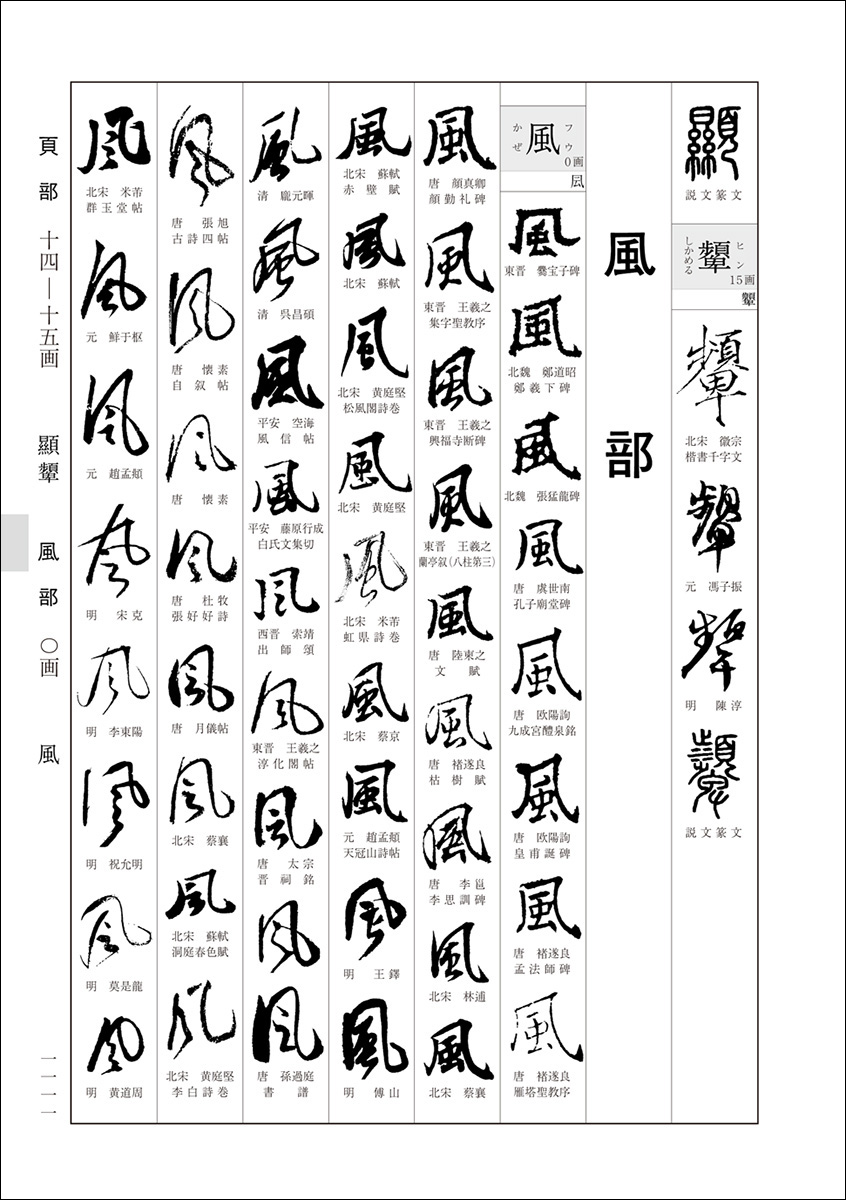 顯
説文篆文
顰
ヒン
しかめる
15画
顰
顰
北宋　徽宗
楷書千字文
顰
元　馮子振
顰
明　陳淳
顰
説文篆文
風部
風
フウ
かぜ
0画
凨
風
東晋　爨宝子碑
風
北魏　鄭道昭
鄭羲下碑
風
北魏　張猛龍碑
風
唐　虞世南
孔子廟堂碑
風
唐　欧陽詢
九成宮醴泉銘
風
唐　欧陽詢
皇甫誕碑
風
唐　褚遂良
孟法師碑
風
唐　褚遂良
雁塔聖教序
風
唐　顔真卿
顔勤礼碑
風
東晋　王羲之
集字聖教序
風
東晋　王羲之
興福寺断碑
風
東晋　王羲之
蘭亭叙(八柱第三)
風
唐　陸東之
文賦
風
唐　褚遂良
枯樹賦
風
唐　李邕
李思訓碑
風
北宋　林逋
風
北宋　蔡襄
風
北宋　蘇軾
赤壁賦
風
北宋　蘇軾
風
北宋　黄庭堅
松風閣詩巻
風
北宋　黄庭堅
風
北宋　米芾
虹県詩巻
風
北宋　蔡京
風
元　趙孟頫
天冠山詩帖
風
明　王鐸
風
明　傅山
風
清　龐元暉
風
清　呉昌碩
風
平安　空海
風信帖
風
平安　藤原行成
白氏文集切
風
西晋　索靖
出師頌
風
東晋　王羲之
淳化閣帖
風
唐　太宗
晋祠銘
風
風
唐　孫過庭
書譜
風
唐　張旭
古詩四帖
風
唐　懐素
自叙帖
風
唐　懐素
風
唐　杜牧
張好好詩
風
唐　月儀帖
風
北宋　蔡襄
風
北宋　蘇軾
洞庭春色賦
風
北宋　黄庭堅
李白詩巻
風
北宋　米芾
群玉堂帖
風
元　鮮于枢
風
元　趙孟頫
風
明　宋克
風
明　李東陽
風
明　祝允明
風
明　莫是龍
風
明　黄道周
頁部　十四―十五画　顯顰　風部　〇画　風
一一一一